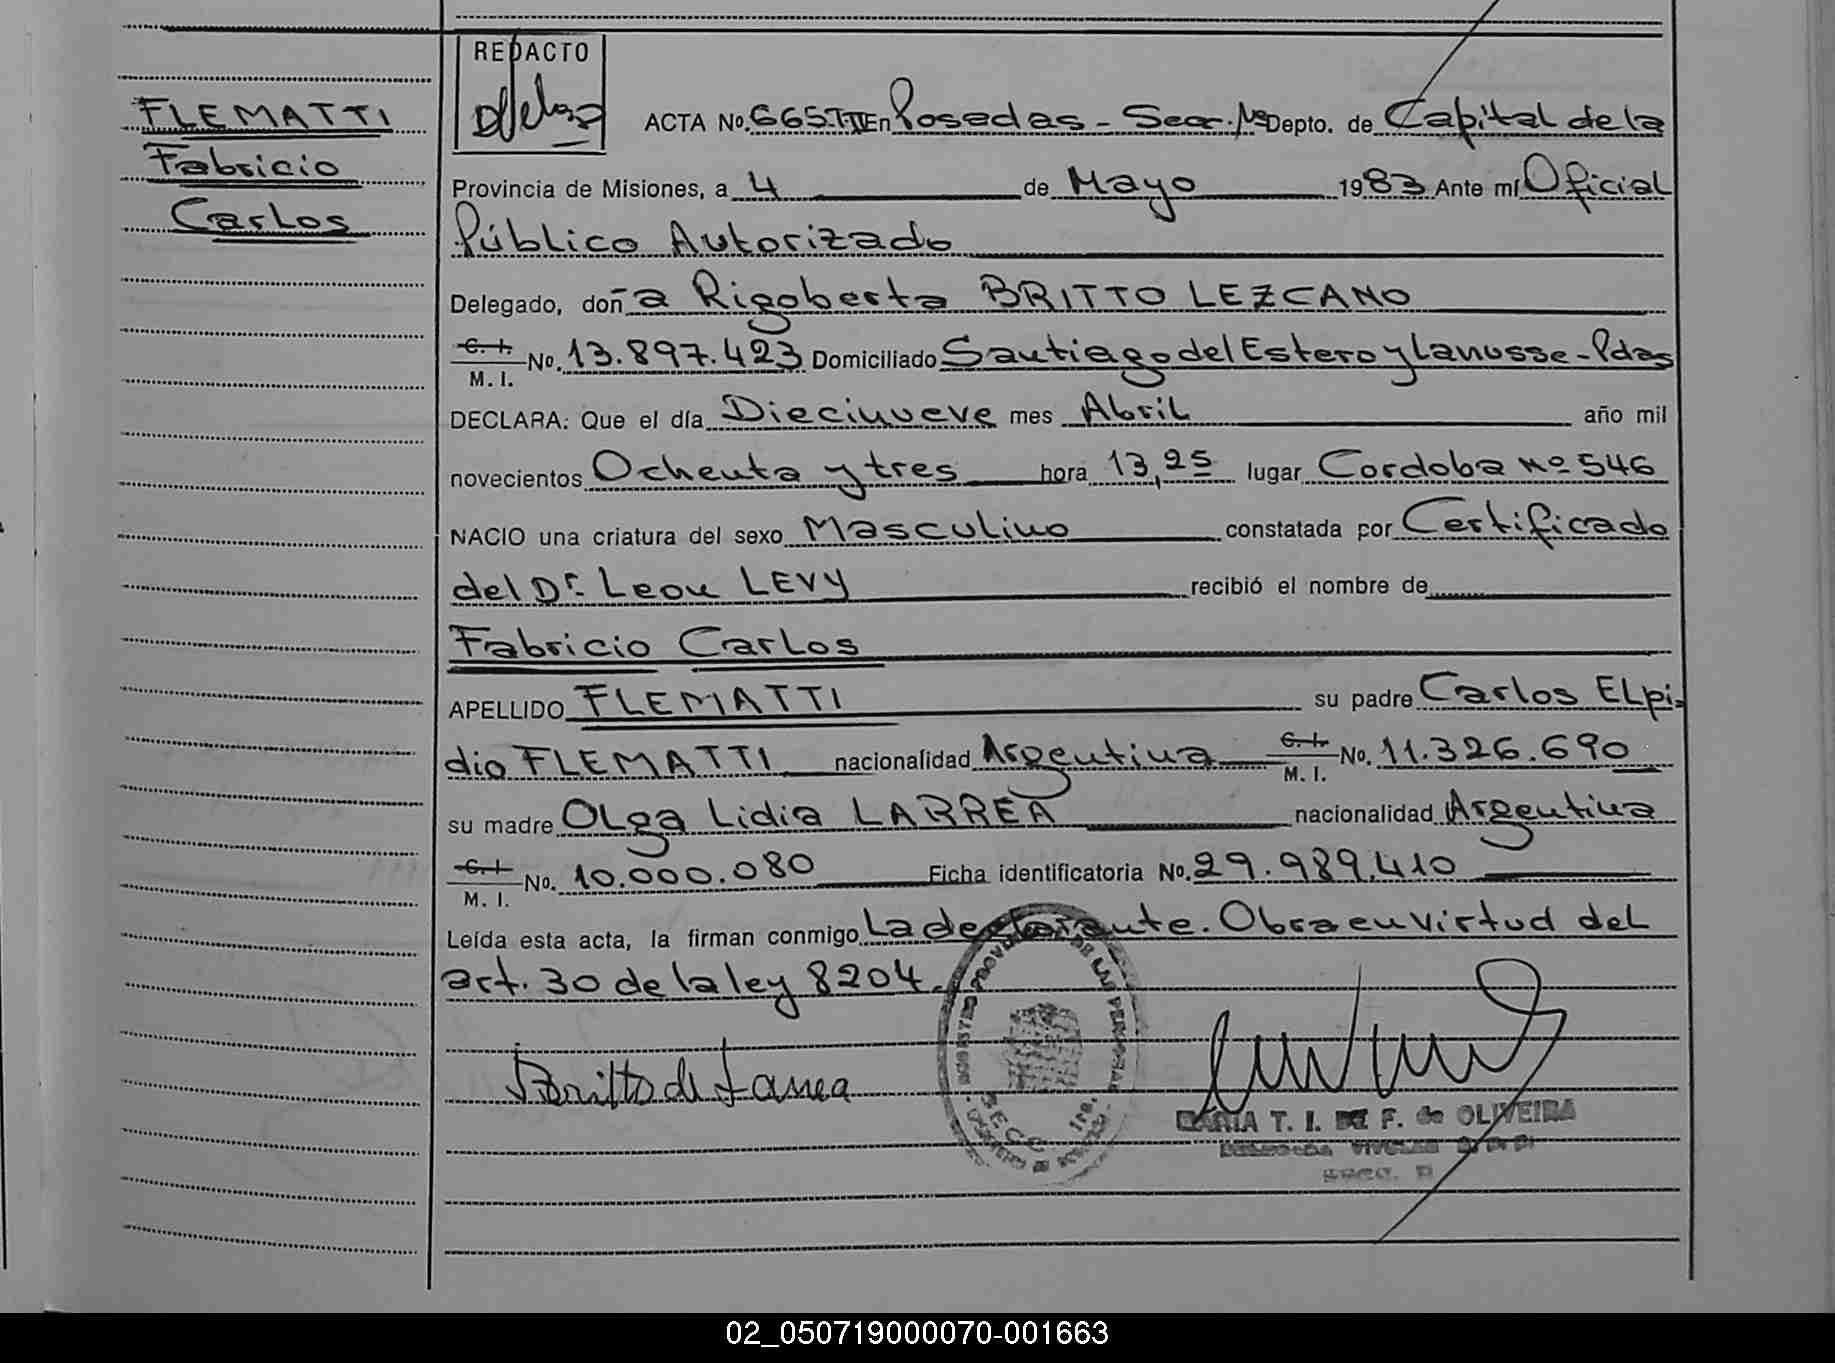 FLEMATTI
Fabricio
Carlos
REDACTO
ACTA No. 665 TII En Posadas - Secr. Depto. de Capital de la
Provincia de Misiones, a 4 de Mayo 1983 Ante mí Oficial
Público Autorizado
Delegado, doña Rigoberta BRITTO LEZCANO
C. I. M. I. No. 13.897.423 Domiciliado Santiago del Estero y Lanusse - Pdas
DECLARA: Que el día Diecinueve mes Abril año mil
novecientos Ochenta y tres hora 13,25 lugar Cordoba nº 546
NACIO una criatura del sexo Masculino constatada por Certificado
del Dr. Leon LEVY recibió el nombre de
Fabricio Carlos
APELLIDO FLEMATTI su padre Carlos ELpi-
dio FLEMATTI nacionalidad Argentina C. I. M. I. No. 11.326.690
su madre OLga Lidia LARREA nacionalidad Argentina
C. I. M. I. No. 10.000.080 Ficha identificatoria No. 29.989.410
Leída esta acta, la firman conmigo La declarante. Obra en virtud del
art. 30 de la ley 8204.
Britto de Larrea
MARIA T. I. DE F. de OLIVEIRA
02_050719000070-001663